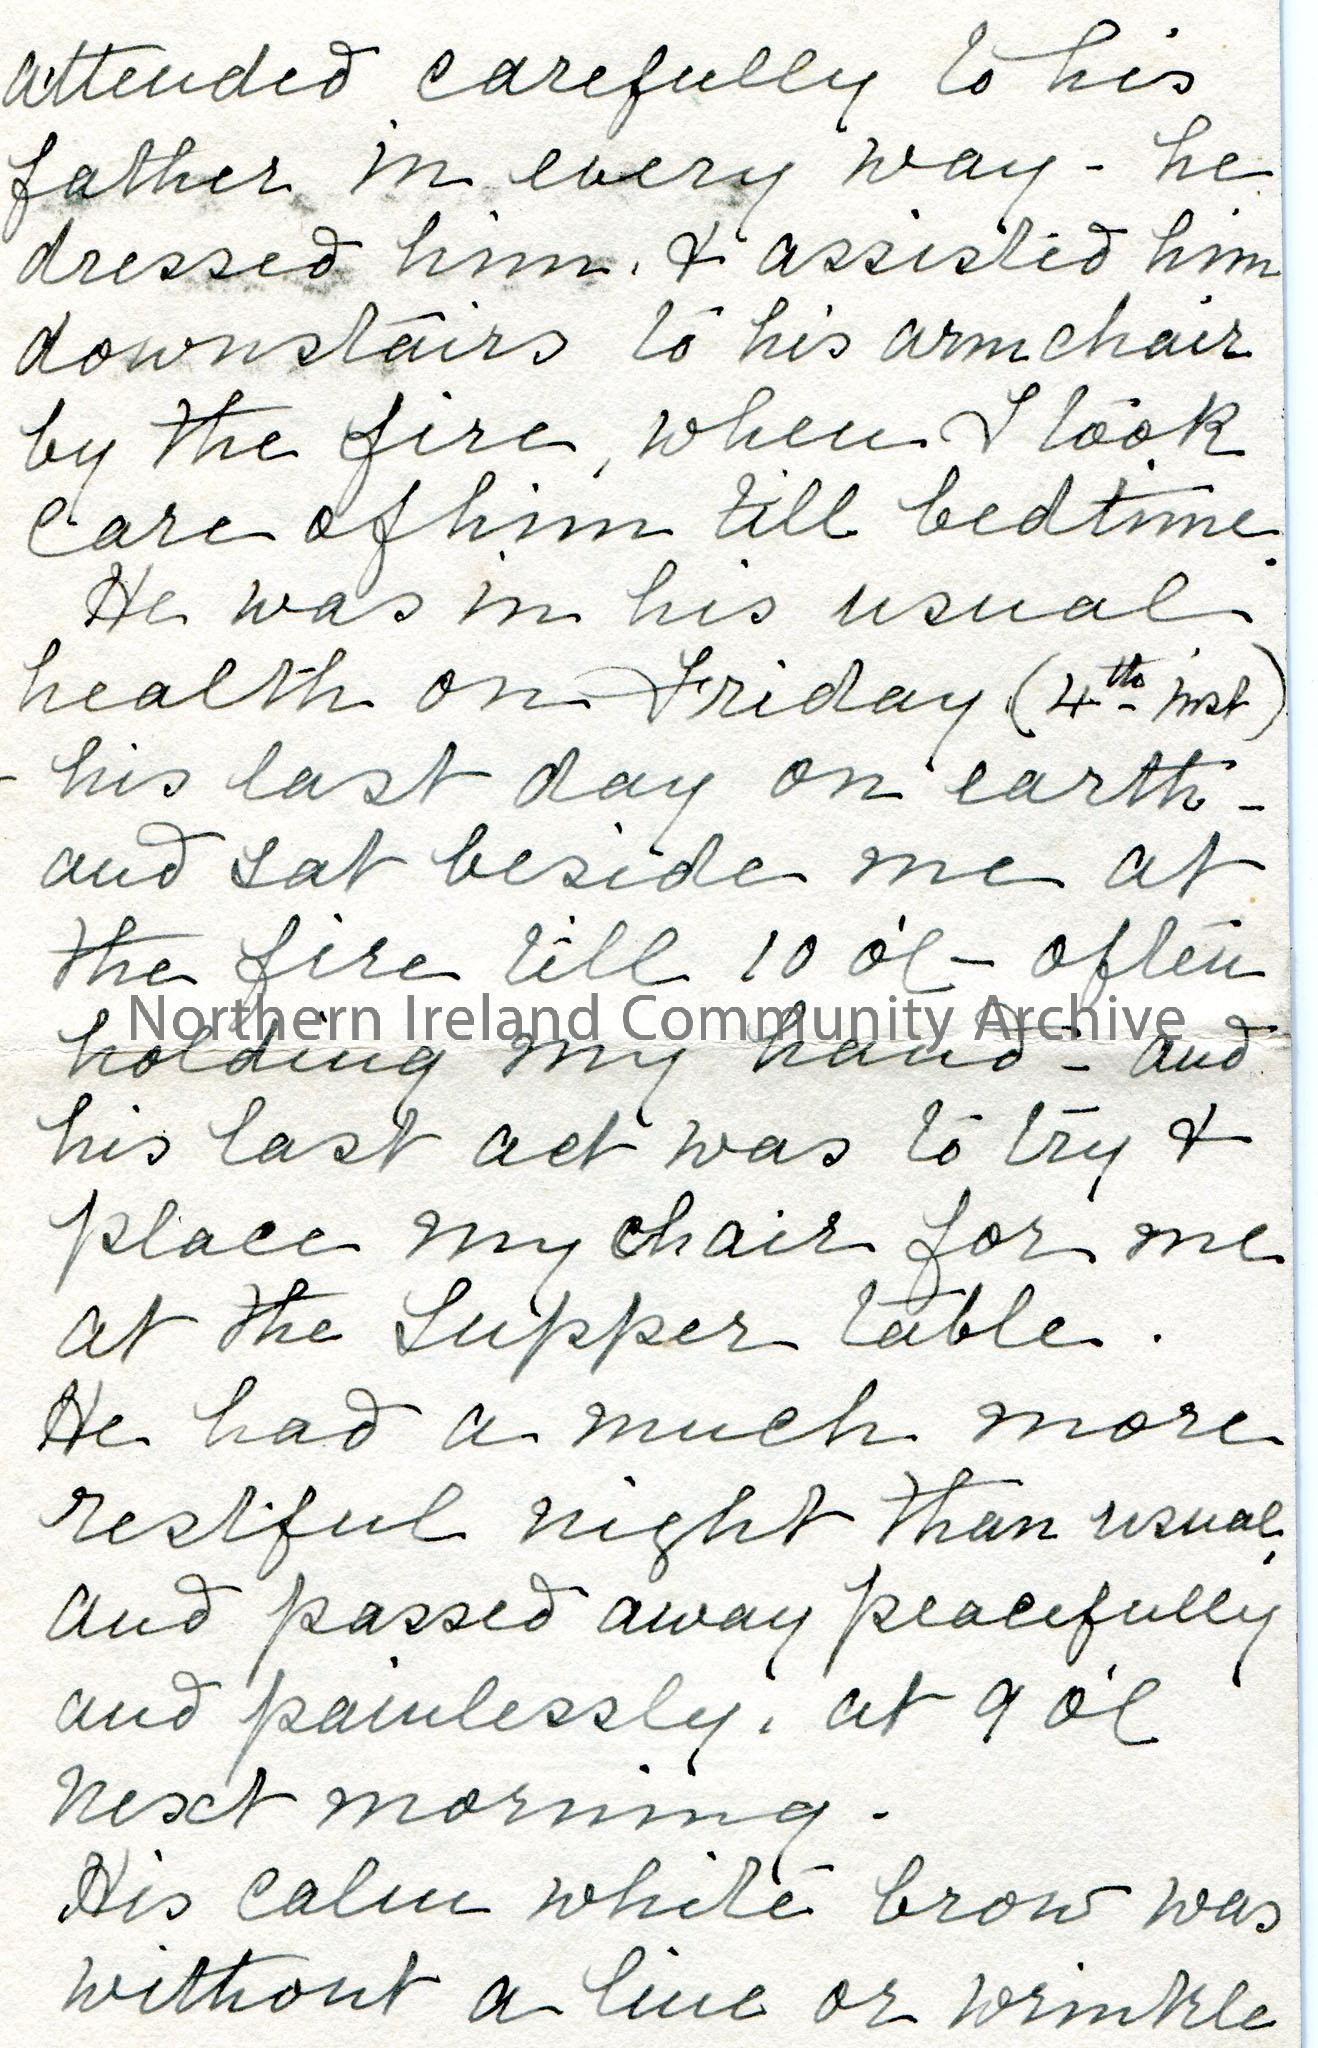 attended carefully to his
father in every way - he
dressed him, & assisted him
downstairs to his armchair
by the fire, when I took
care of him till bedtime.
He was in his usual
health on Friday (4th inst)
- his last day on earth -
and sat beside me at
the fire till 10 o'c - often
Northern Ireland Community Archive
holding my hand - and
his last act was to try &
place my chair for me
at the Supper table.
He had a much more
restful night than usual,
and passed away peacefully
and painlessly, at 9 o'c
next morning.
His calm white brow was
without a line or wrinkle